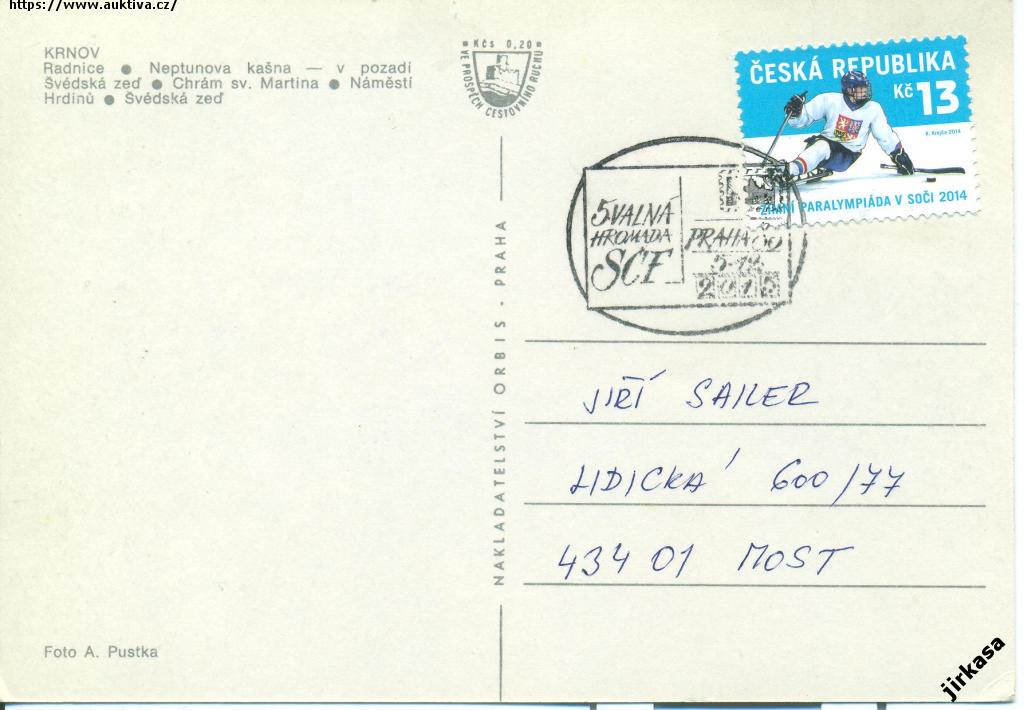 https://www.auktiva.cz/
KRNOV
Radnice ● Neptunova kašna — v pozadí
Švédská zeď ● Chrám sv. Martina ● Náměstí
Hrdinů ● Švédská zeď
Kčs 0,20
VE PROSPĚCH CESTOVNÍHO RUCHU
ČESKÁ REPUBLIKA
Kč 13
ZIMNÍ PARALYMPIÁDA V SOČI 2014
5 VALNÁ
HROMADA
SČF
PRAHA
2015
NAKLADATELSTVÍ ORBIS - PRAHA
JIŘÍ SAILER
LIDICKÁ 600/77
434 01 MOST
Foto A. Pustka
jirkasa